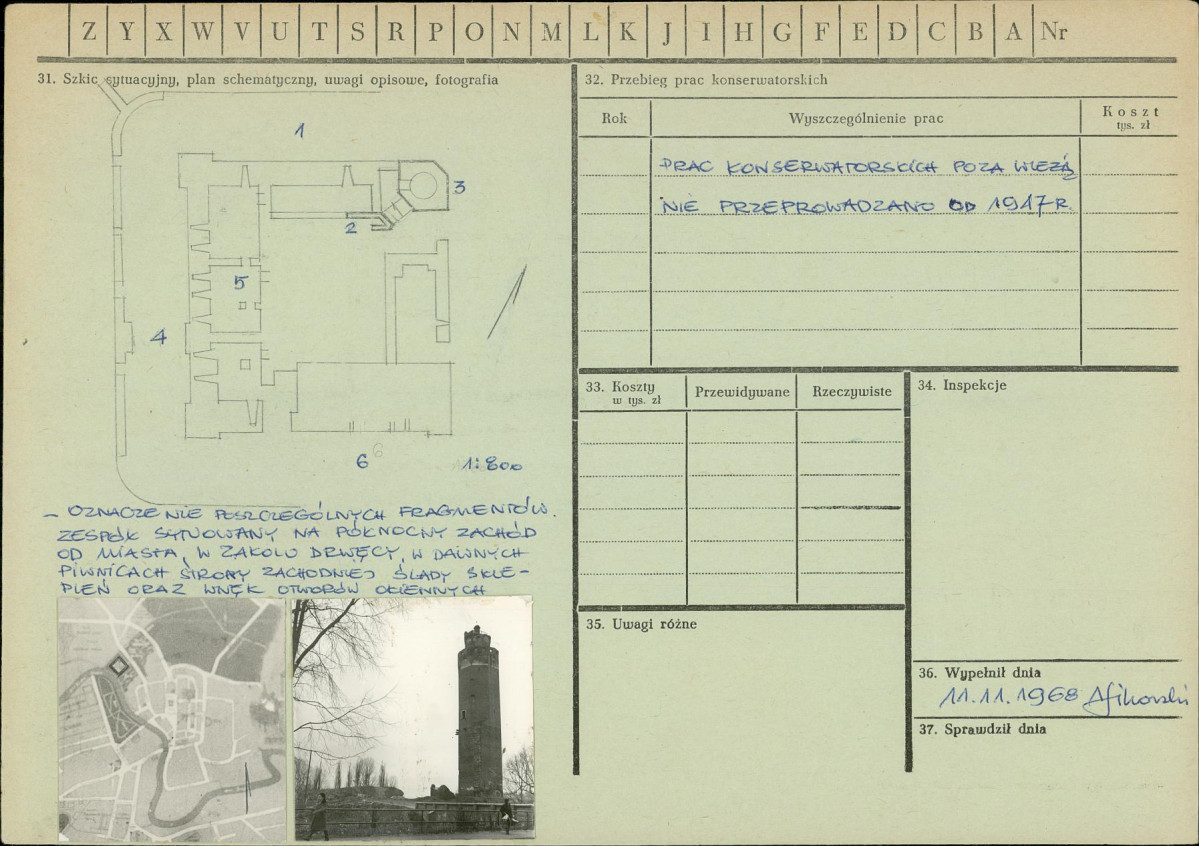 Z Y X W V U T S R P O N M L K J I H G F E D C B A Nr
31. Szkic sytuacyjny, plan schematyczny, uwagi opisowe, fotografia
1
3
2
5
4
6
6
1:800
– OZNACZENIE POSZCZEGÓLNYCH FRAGMENTÓW.
ZESPÓŁ SYTUOWANY NA PÓŁNOCNY ZACHÓD
OD MIASTA, W ZAKOLU DRWĘCY, W DAWNYCH
PIWNICACH STRONY ZACHODNIEJ ŚLADY SKLE-
PIEŃ ORAZ WNĘK OTWORÓW OKIENNYCH
32. Przebieg prac konserwatorskich
Rok Wyszczególnienie prac Koszt
tys. zł
PRAC KONSERWATORSKICH POZA WIEŻĄ
NIE PRZEPROWADZANO OD 1917 R.
33. Koszty
w tys. zł
Przewidywane Rzeczywiste
34. Inspekcje
35. Uwagi różne
36. Wypełnił dnia
11.11.1968
37. Sprawdził dnia